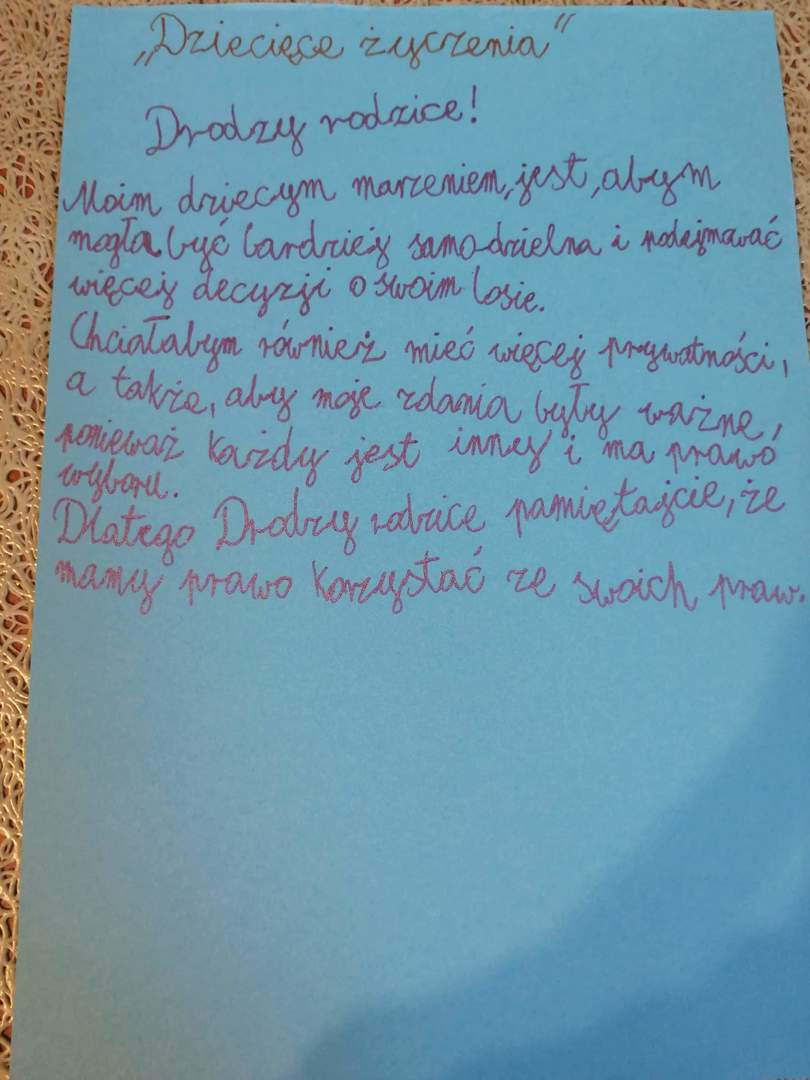 „Dziecięce życzenia”
Drodzy rodzice!
Moim dziecym marzeniem, jest, abym
mogła być bardziej samodzielna i podejmować
więcej decyzji o swoim losie.
Chciałabym również mieć więcej prywatności,
a także, aby moje zdania były ważne,
ponieważ każdy jest inny i ma prawo
wyboru.
Dlatego Drodzy rodzice pamiętajcie, że
mamy prawo korzystać ze swoich praw.